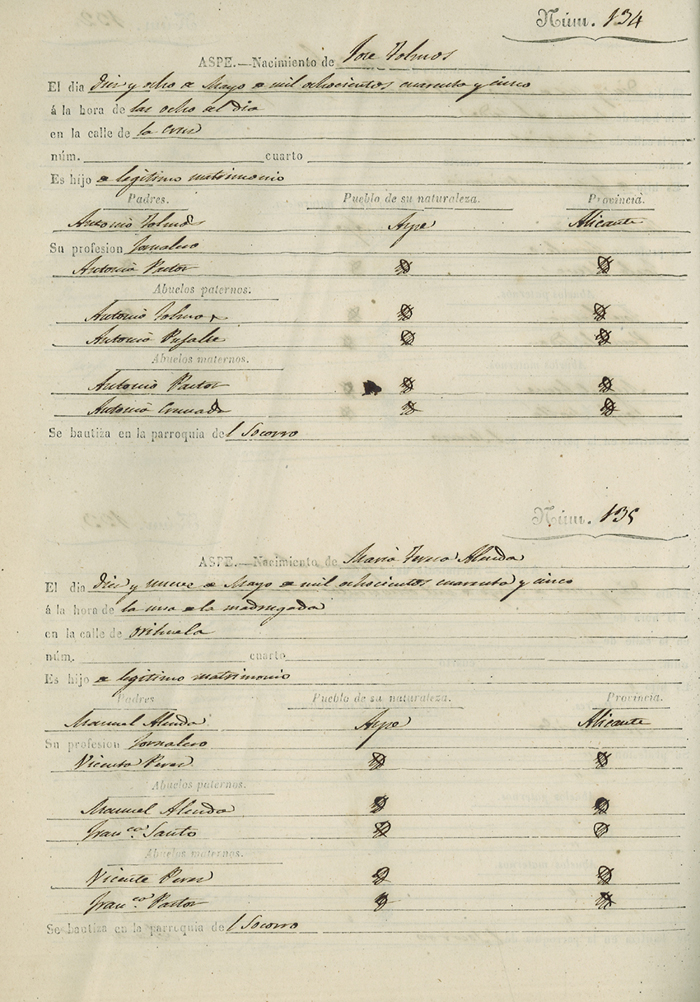 Núm. 134
ASPE.—Nacimiento de Jose Tolmos
El dia diez y ocho de Mayo de mil ochocientos cuarenta y cinco
á la hora de las ocho del dia
en la calle de la cruz
núm. cuarto
Es hijo de legitimo matrimonio
Padres. Pueblo de su naturaleza. Provincia.
Antonio Tolmos Aspe Alicante
Su profesion Jornalero
Antonia Pastor
Abuelos paternos.
Antonio Tolmos
Antonia Pujalte
Abuelos maternos.
Antonio Pastor
Antonia
Se bautiza en la parroquia del Socorro
Núm. 135
ASPE.—Nacimiento de Maria Teresa Alenda
El dia diez y nueve de Mayo de mil ochocientos cuarenta y cinco
á la hora de la una de la madrugada
en la calle de orihuela
núm. cuarto
Es hijo de legitimo matrimonio
Padres Pueblo de su naturaleza. Provincia.
Manuel Alenda Aspe Alicante
Su profesion Jornalero
Vicenta Perez
Abuelos paternos.
Manuel Alenda
Franca. Santo
Abuelos maternos.
Vicente Perez
Franca. Pastor
Se bautiza en la parroquia del Socorro